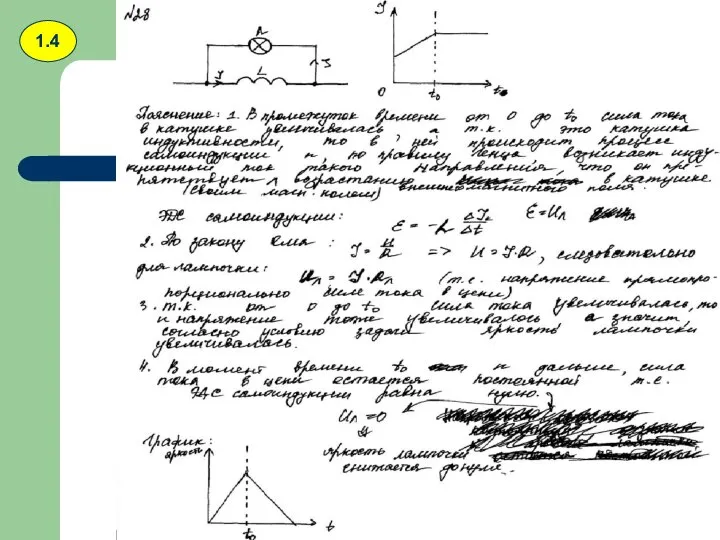 1.4
№28
Л
I
L
I
I
0
t₀
t
Пояснение: 1. В промежуток времени от 0 до t₀ сила тока
в катушке увеличивалась, а т.к. это катушка
индуктивности, то в ней происходит процесс
самоиндукции и, по правилу Ленца возникает инду-
кционный ток такого направления, что он пре-
пятствует возрастанию в катушке.
(своим магн. полем) внешнего магнитного поля.
ЭДС самоиндукции: ε = -L ΔI/Δt ε=Uл
2. По закону Ома: I = U/R => U = I·R, следовательно
для лампочки:
Uл = I·Rл (т.е. напряжение прямопро-
порционально силе тока в цепи)
3. т.к. от 0 до t₀ сила тока увеличивалась, то
и напряжение тоже увеличивалось а значит,
согласно условию задачи яркость лампочки
увеличивалась.
4. В момент времени t₀ и дальше, сила
тока в цепи остается постоянной т.е.
ЭДС самоиндукции равна нулю.
Uл =0
⇓
График:
яркость лампочки
снижается до нуля.
яркость
t₀
t